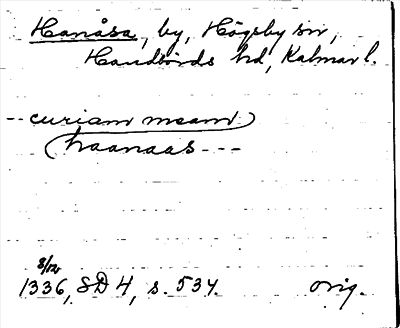 Hanåsa, by, Högsby sn,
Handbörds hd, Kalmar l.
-- curiam meam
haanaas ---
8/12
1336, SD 4, s. 534. orig.